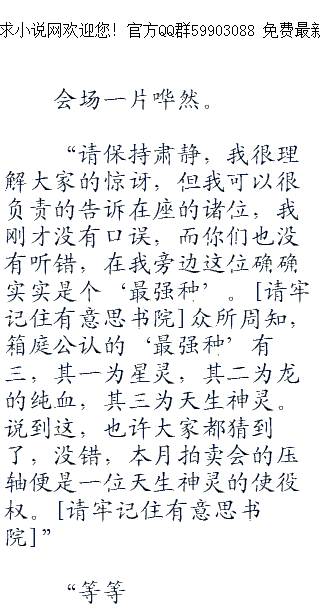 求小说网欢迎您！官方QQ群59903088 免费最新
会场一片哗然。
“请保持肃静，我很理
解大家的惊讶，但我可以很
负责的告诉在座的诸位，我
刚才没有口误，而你们也没
有听错，在我旁边这位确确
实实是个‘最强种’。[请牢
记住有意思书院]众所周知，
箱庭公认的‘最强种’有
三，其一为星灵，其二为龙
的纯血，其三为天生神灵。
说到这，也许大家都猜到
了，没错，本月拍卖会的压
轴便是一位天生神灵的使役
权。[请牢记住有意思书
院]”
“等等